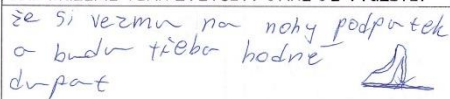 že si vezmu na nohy podpatek
a budu třeba hodně
dupat